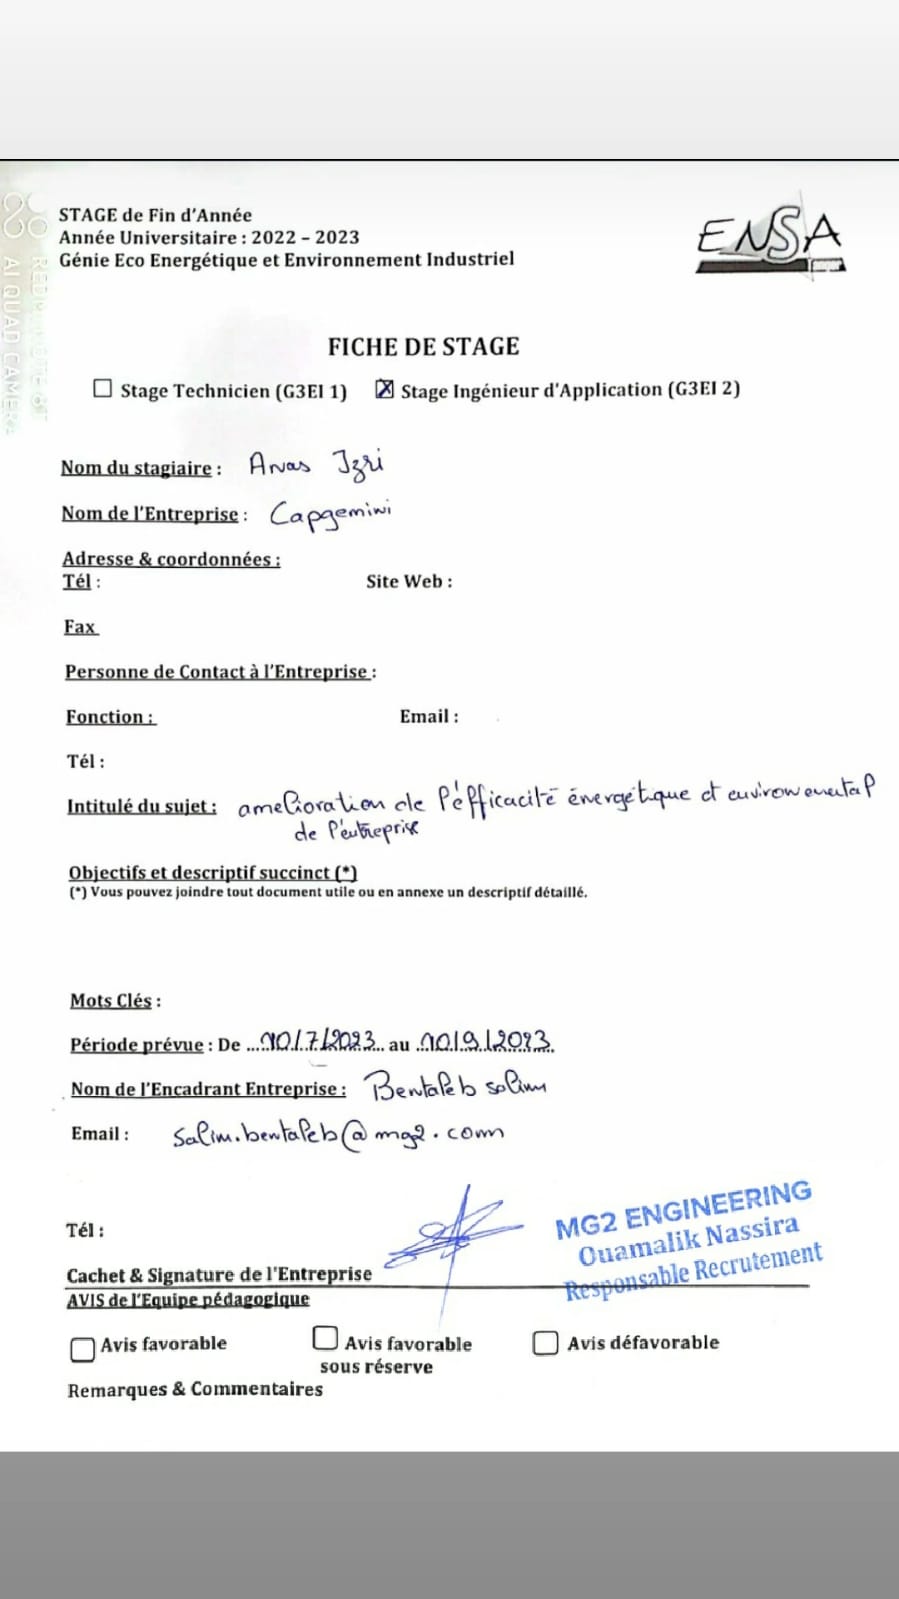 STAGE de Fin d'Année
Année Universitaire : 2022 – 2023
Génie Eco Energétique et Environnement Industriel
ENSA
FICHE DE STAGE
Stage Technicien (G3EI 1) Stage Ingénieur d'Application (G3EI 2)
Nom du stagiaire : Anas Izri
Nom de l'Entreprise : Capgemini
Adresse & coordonnées :
Tél : Site Web :
Fax
Personne de Contact à l'Entreprise :
Fonction : Email :
Tél :
Intitulé du sujet : amelioration de l'éfficacité énergétique et environemental
de l'entreprise
Objectifs et descriptif succinct (*)
(*) Vous pouvez joindre tout document utile ou en annexe un descriptif détaillé.
Mots Clés :
Période prévue : De ...10/7/2023... au ..10/9/2023.
Nom de l'Encadrant Entreprise : Bentaleb salim
Email : salim.bentaleb@mg2.com
Tél :
MG2 ENGINEERING
Ouamalik Nassira
Responsable Recrutement
Cachet & Signature de l'Entreprise
AVIS de l'Equipe pédagogique
Avis favorable Avis favorable Avis défavorable
sous réserve
Remarques & Commentaires
AI QUAD CAMERA